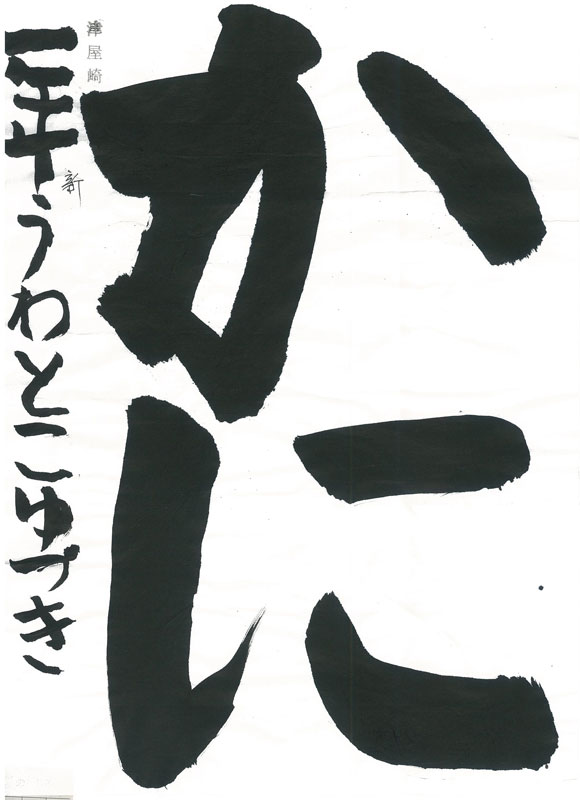 かに
二年うわとこゆづき
津屋崎
新